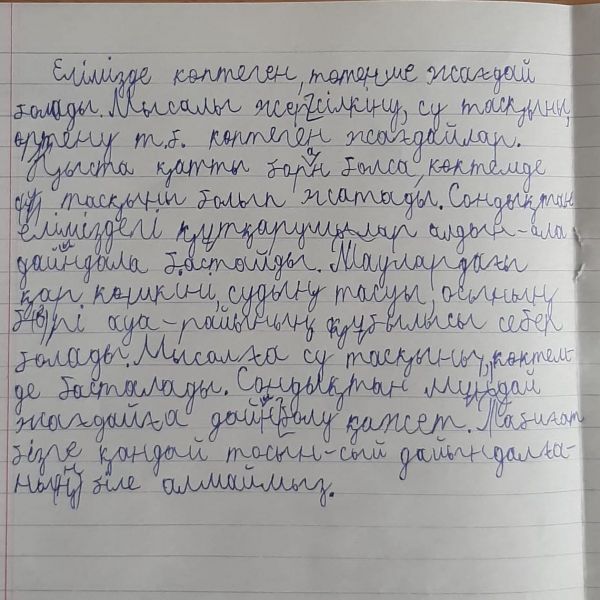 Елімізде көптеген, төтенше жағдай
болады. Мысалы жер сілкіну, су тасқыны,
өртену т.б. көптеген жағдайлар.
Қыста қатты боран болса, көктемде
су тасқыны болып жатады. Сондықтан
еліміздегі құтқарушылар алдын-ала
дайындала бастайды. Таулардағы
қар көшкіні, судың тасуы, осының
бәрі ауа-райының құбылысы себер
болады. Мысалға су тасқыны, көктем-
де басталады. Сондықтан мұндай
жағдайға дайын болу қажет. Табиғат
бізге қандай тосын-сый дайындалға-
нын біле алмаймыз.